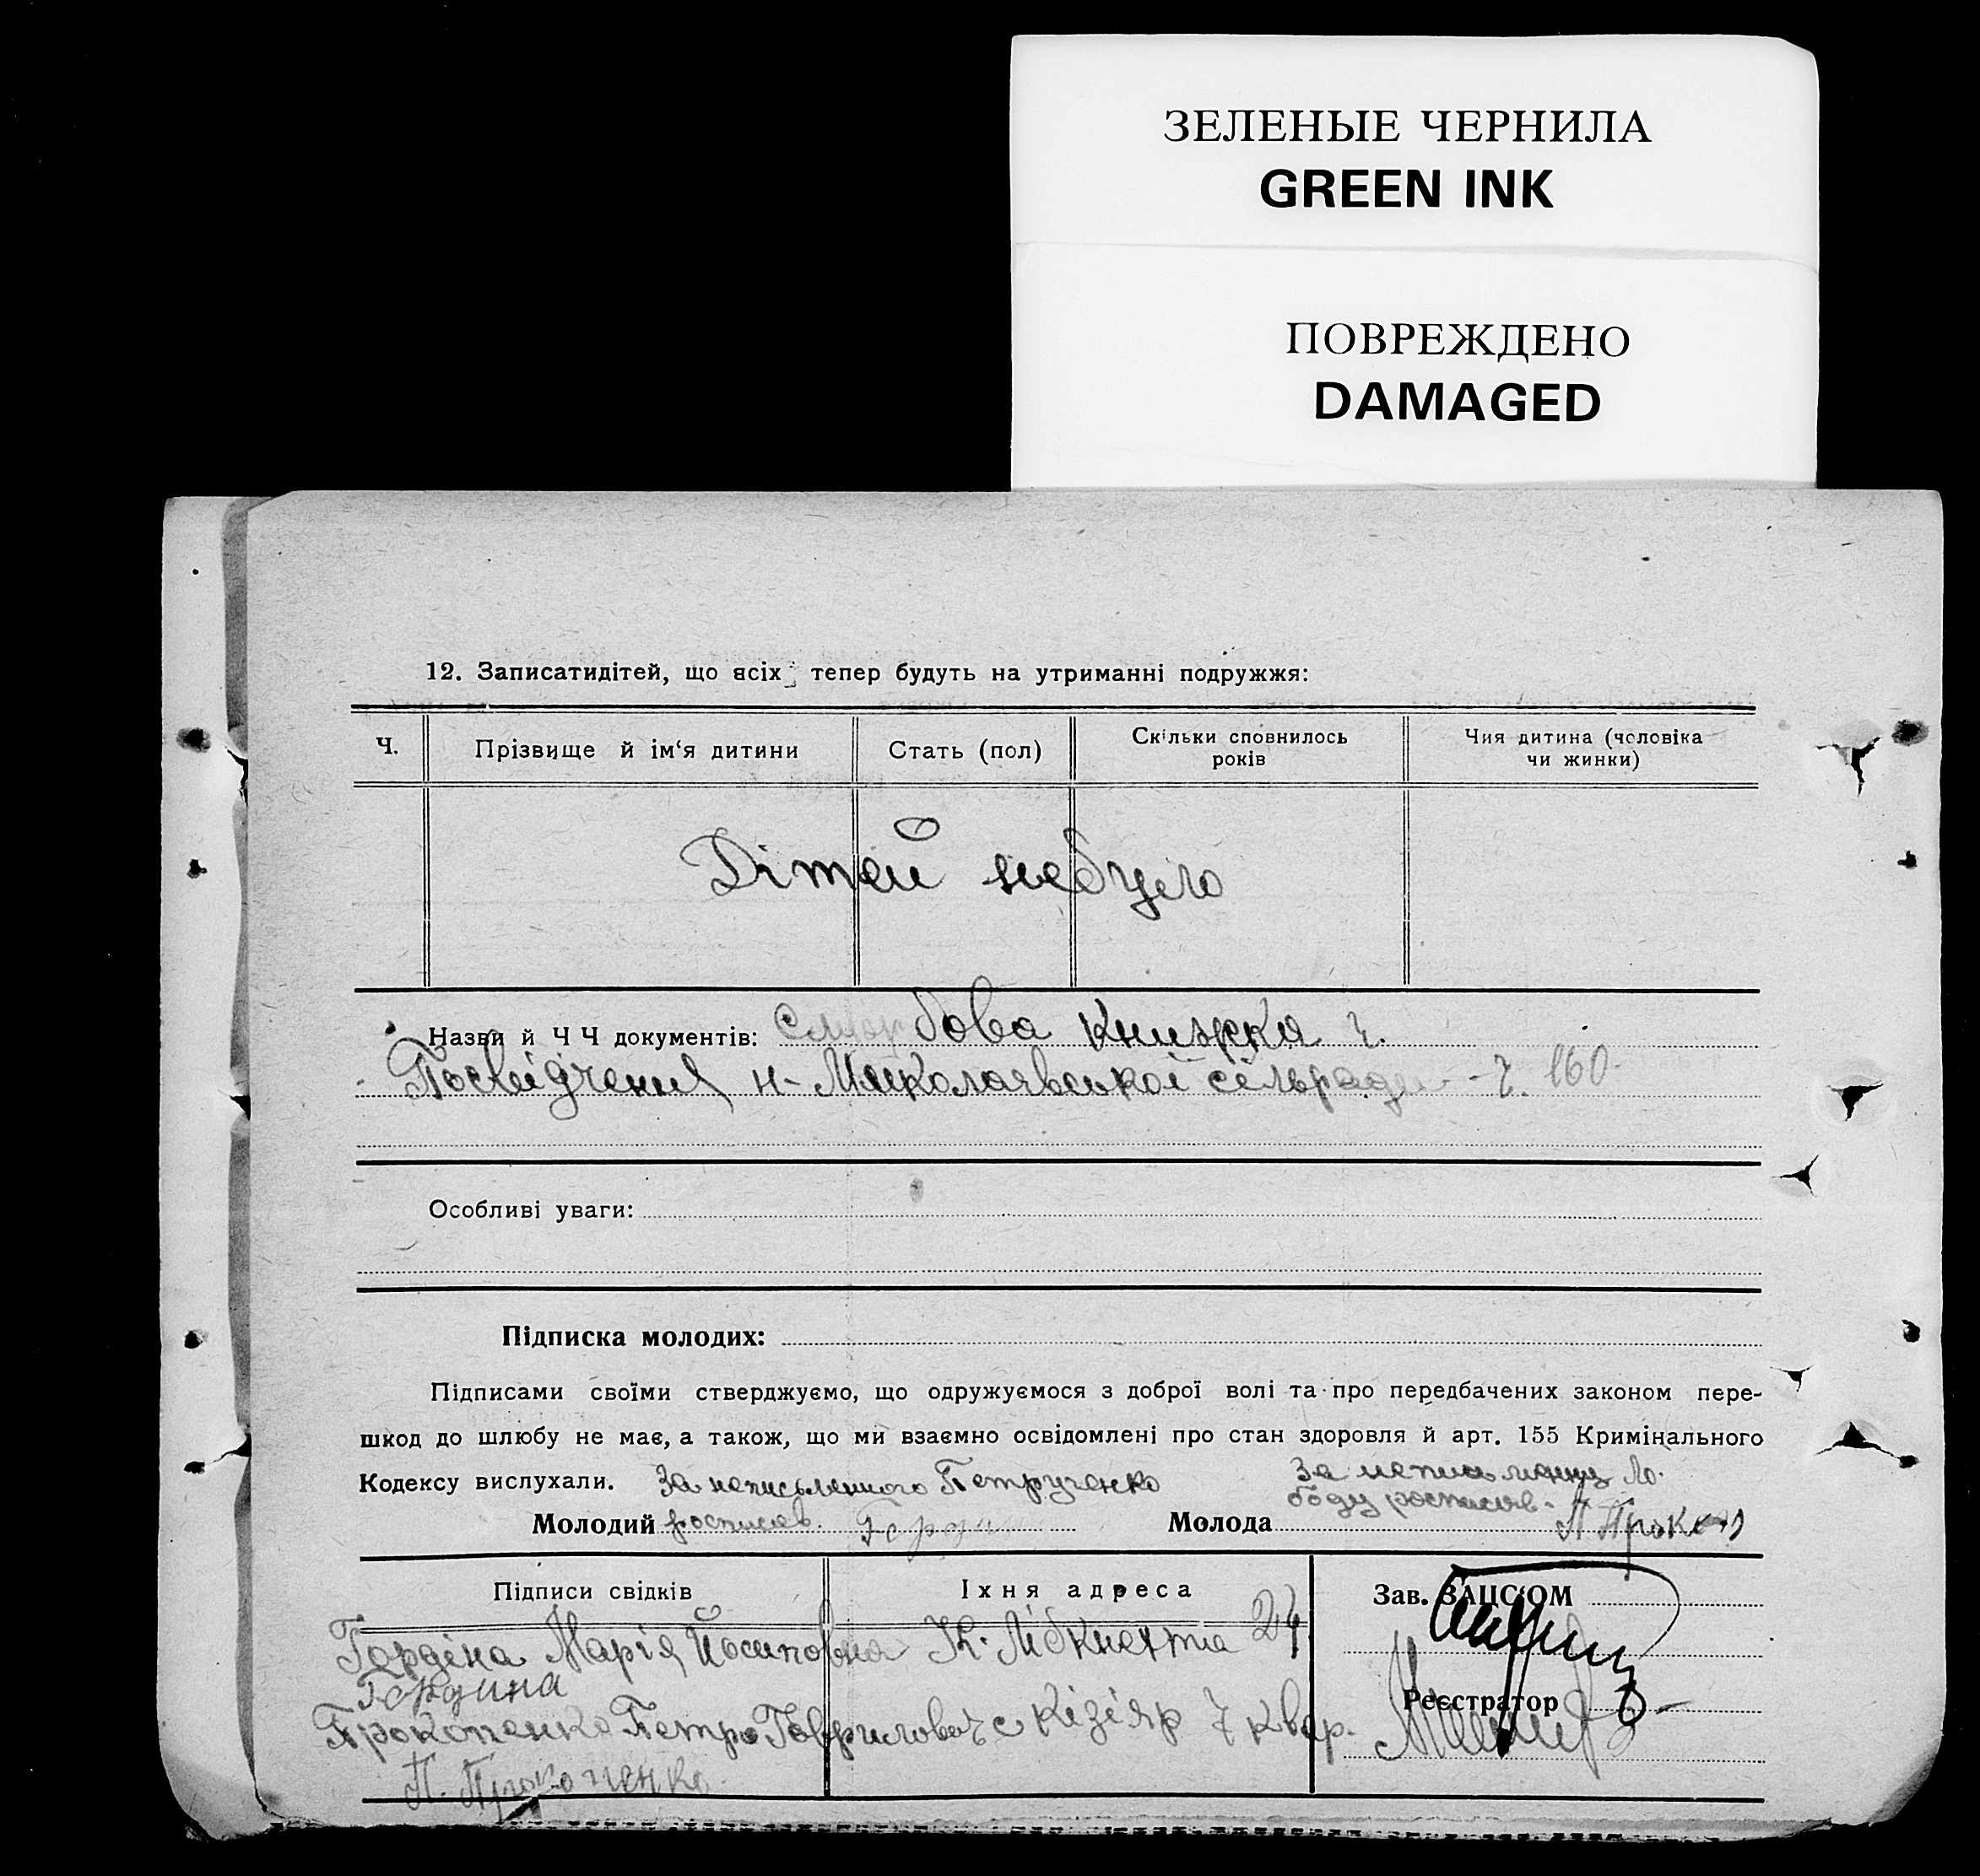 ЗЕЛЕНЫЕ ЧЕРНИЛА
GREEN INK
ПОВРЕЖДЕНО
DAMAGED
12. Записатидітей, що всіх тепер будуть на утриманні подружжя:
Ч. Прізвище й ім‘я дитини Стать (пол) Скільки сповнилось років Чия дитина (чоловіка чи жинки)
Дітей небуло
Назви й Ч Ч документів: книжка ч.
Посвідчення н-Миколаявської сільради - ч. 160
Особливі уваги:
Підписка молодих:
Підписами своїми стверджуємо, що одружуємося з доброї волі та про передбачених законом пере-
шкод до шлюбу не має, а також, що ми взаємно освідомлені про стан здоровля й арт. 155 Кримінального
Кодексу вислухали. За неписьменного Петрученко За неписьменну Мо-
лоду росписав.
Молодий росписав. Молода
Підписи свідків Їхня адреса Зав. ЗАЦС‘ОМ
Гордіна Марія Йосиповна К. Лібкнехта 24
Гордина
Реєстратор
Прокопенко Петро Гаврилович с Кізіяр 7 квар.
П. Прокопенко